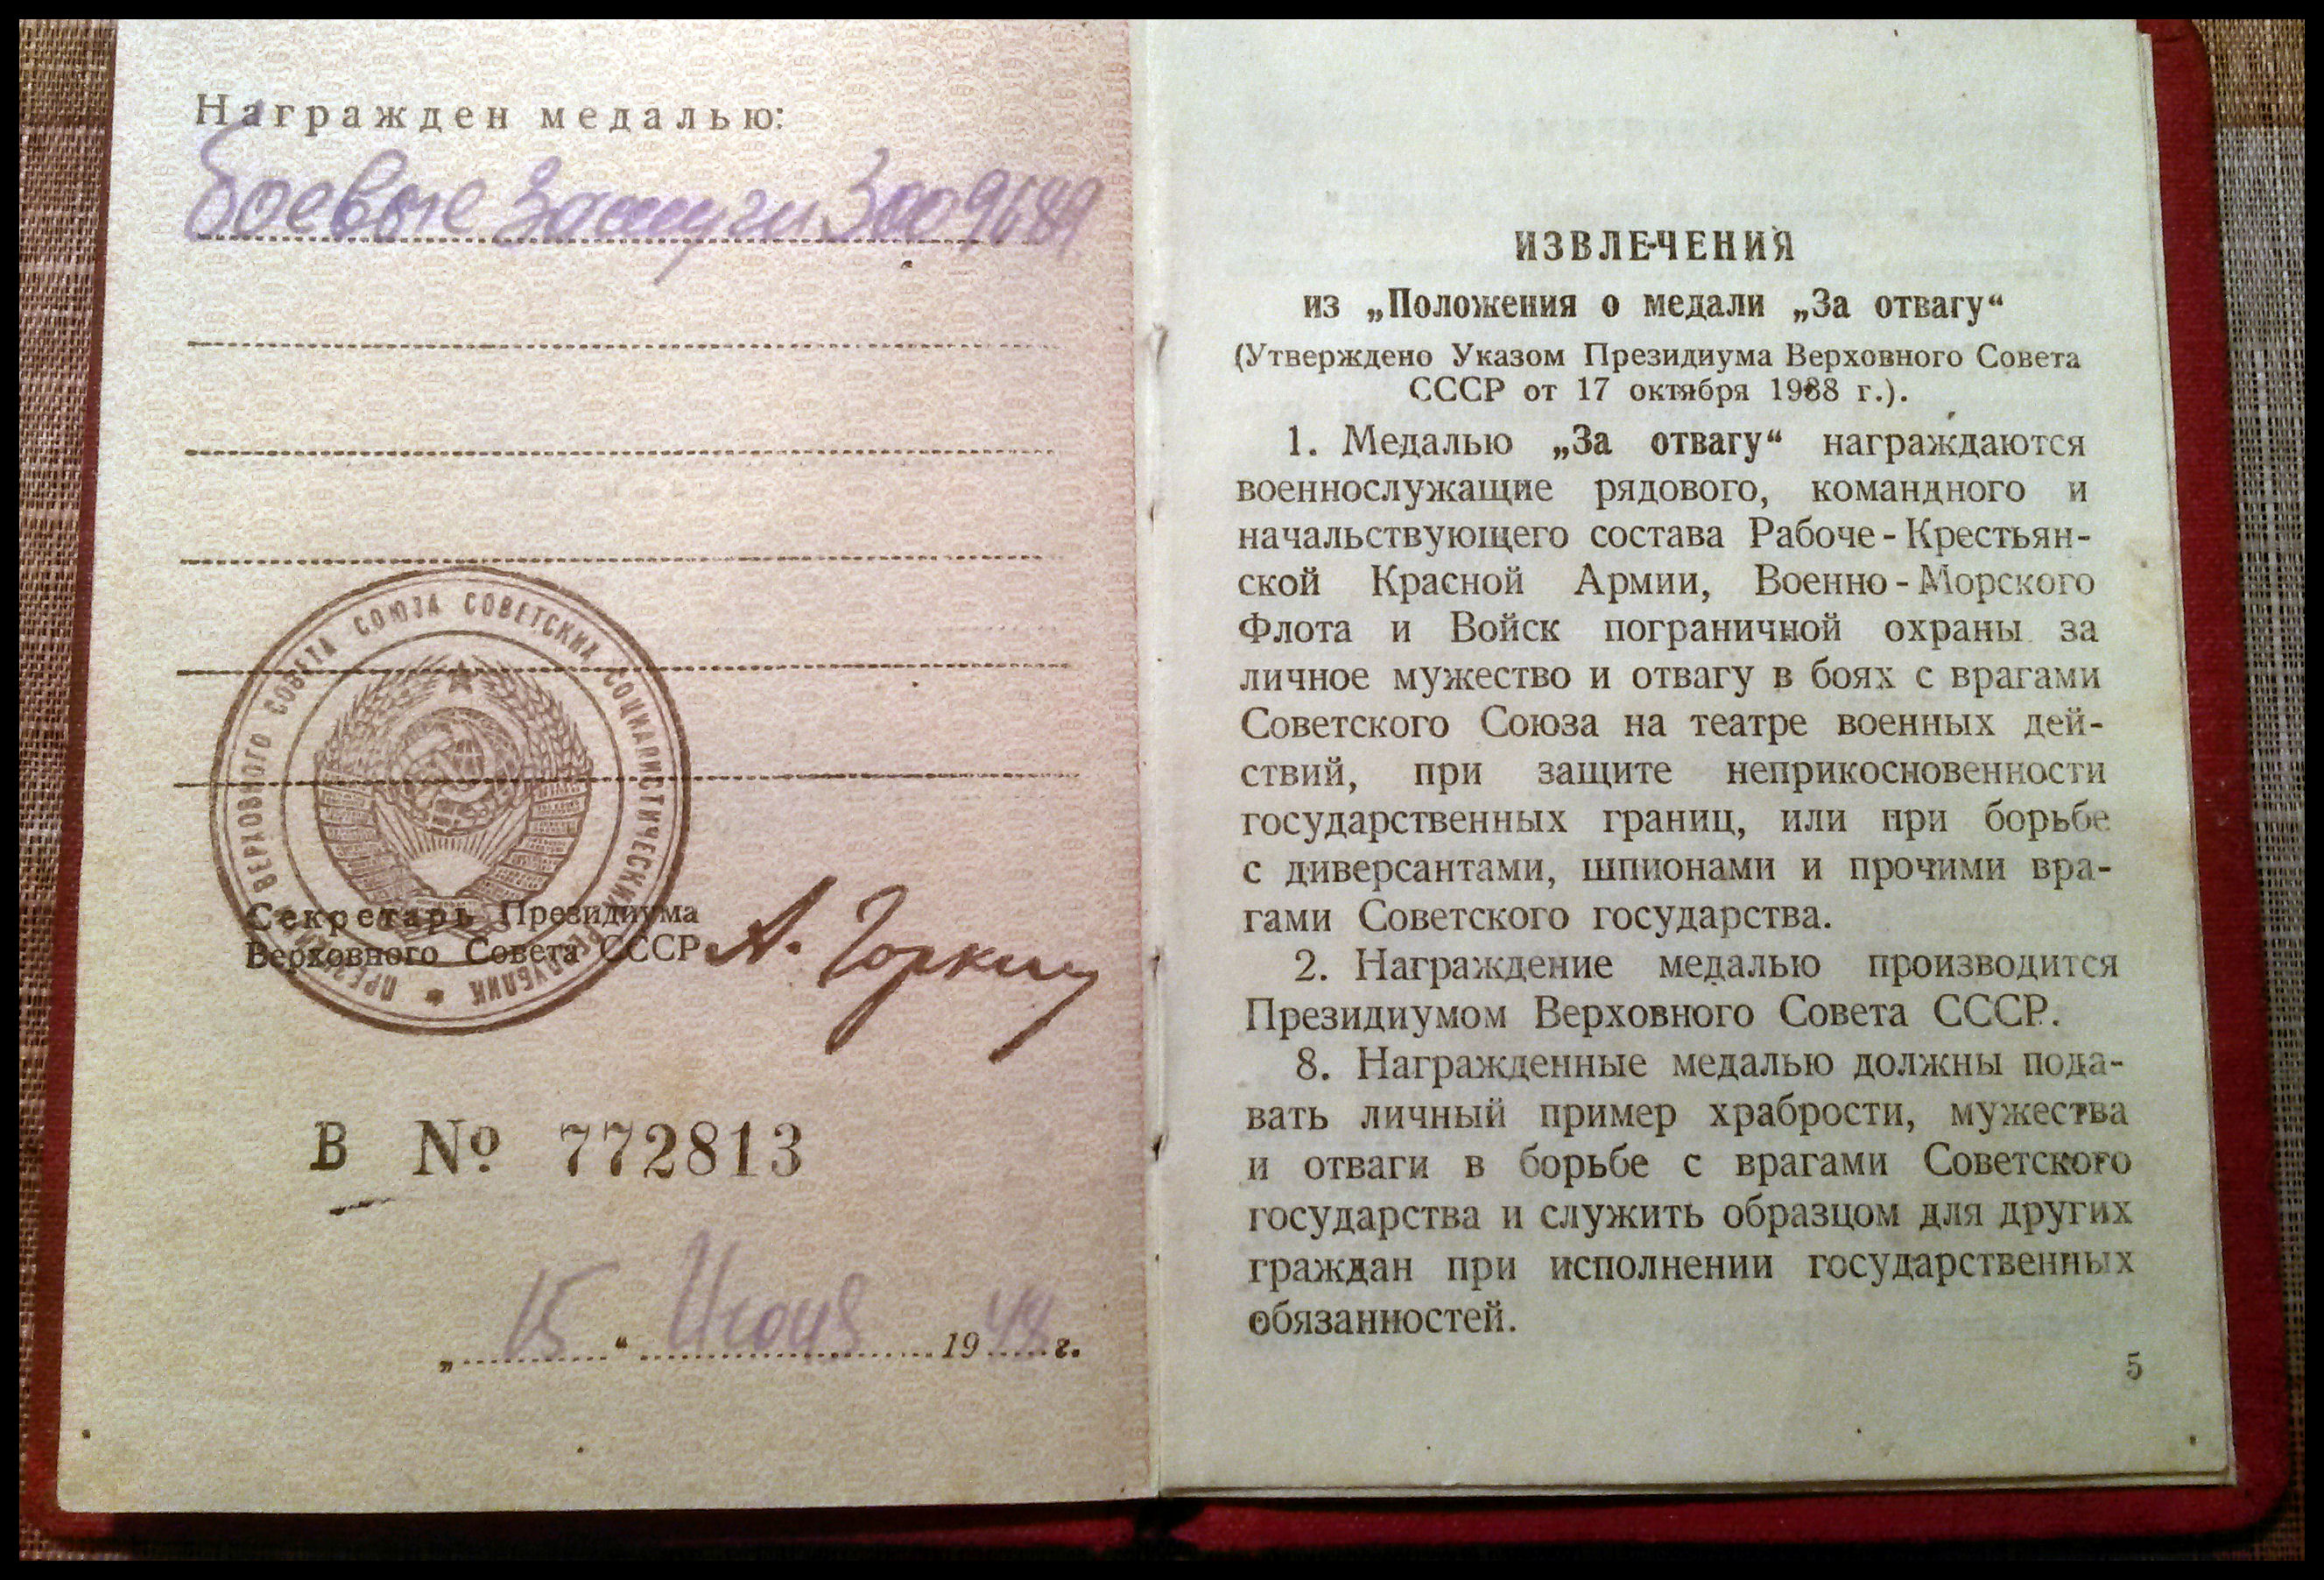 Награжден медалью:
боевые заслуги 3009689
ПРЕЗИДИУМ ВЕРХОВНОГО СОВЕТА СОЮЗА СОВЕТСКИХ СОЦИАЛИСТИЧЕСКИХ РЕСПУБЛИК
Секретарь Президиума
Верховного Совета СССР А. Горкин
В № 772813
„ 15 “ Июня 1948 г.
ИЗВЛЕЧЕНИЯ
из „Положения о медали „За отвагу“
(Утверждено Указом Президиума Верховного Совета
СССР от 17 октября 1938 г.).
1. Медалью „За отвагу“ награждаются
военнослужащие рядового, командного и
начальствующего состава Рабоче-Крестьян-
ской Красной Армии, Военно-Морского
Флота и Войск пограничной охраны за
личное мужество и отвагу в боях с врагами
Советского Союза на театре военных дей-
ствий, при защите неприкосновенности
государственных границ, или при борьбе
с диверсантами, шпионами и прочими вра-
гами Советского государства.
2. Награждение медалью производится
Президиумом Верховного Совета СССР.
8. Награжденные медалью должны пода-
вать личный пример храбрости, мужества
и отваги в борьбе с врагами Советского
государства и служить образцом для других
граждан при исполнении государственных
обязанностей.
5